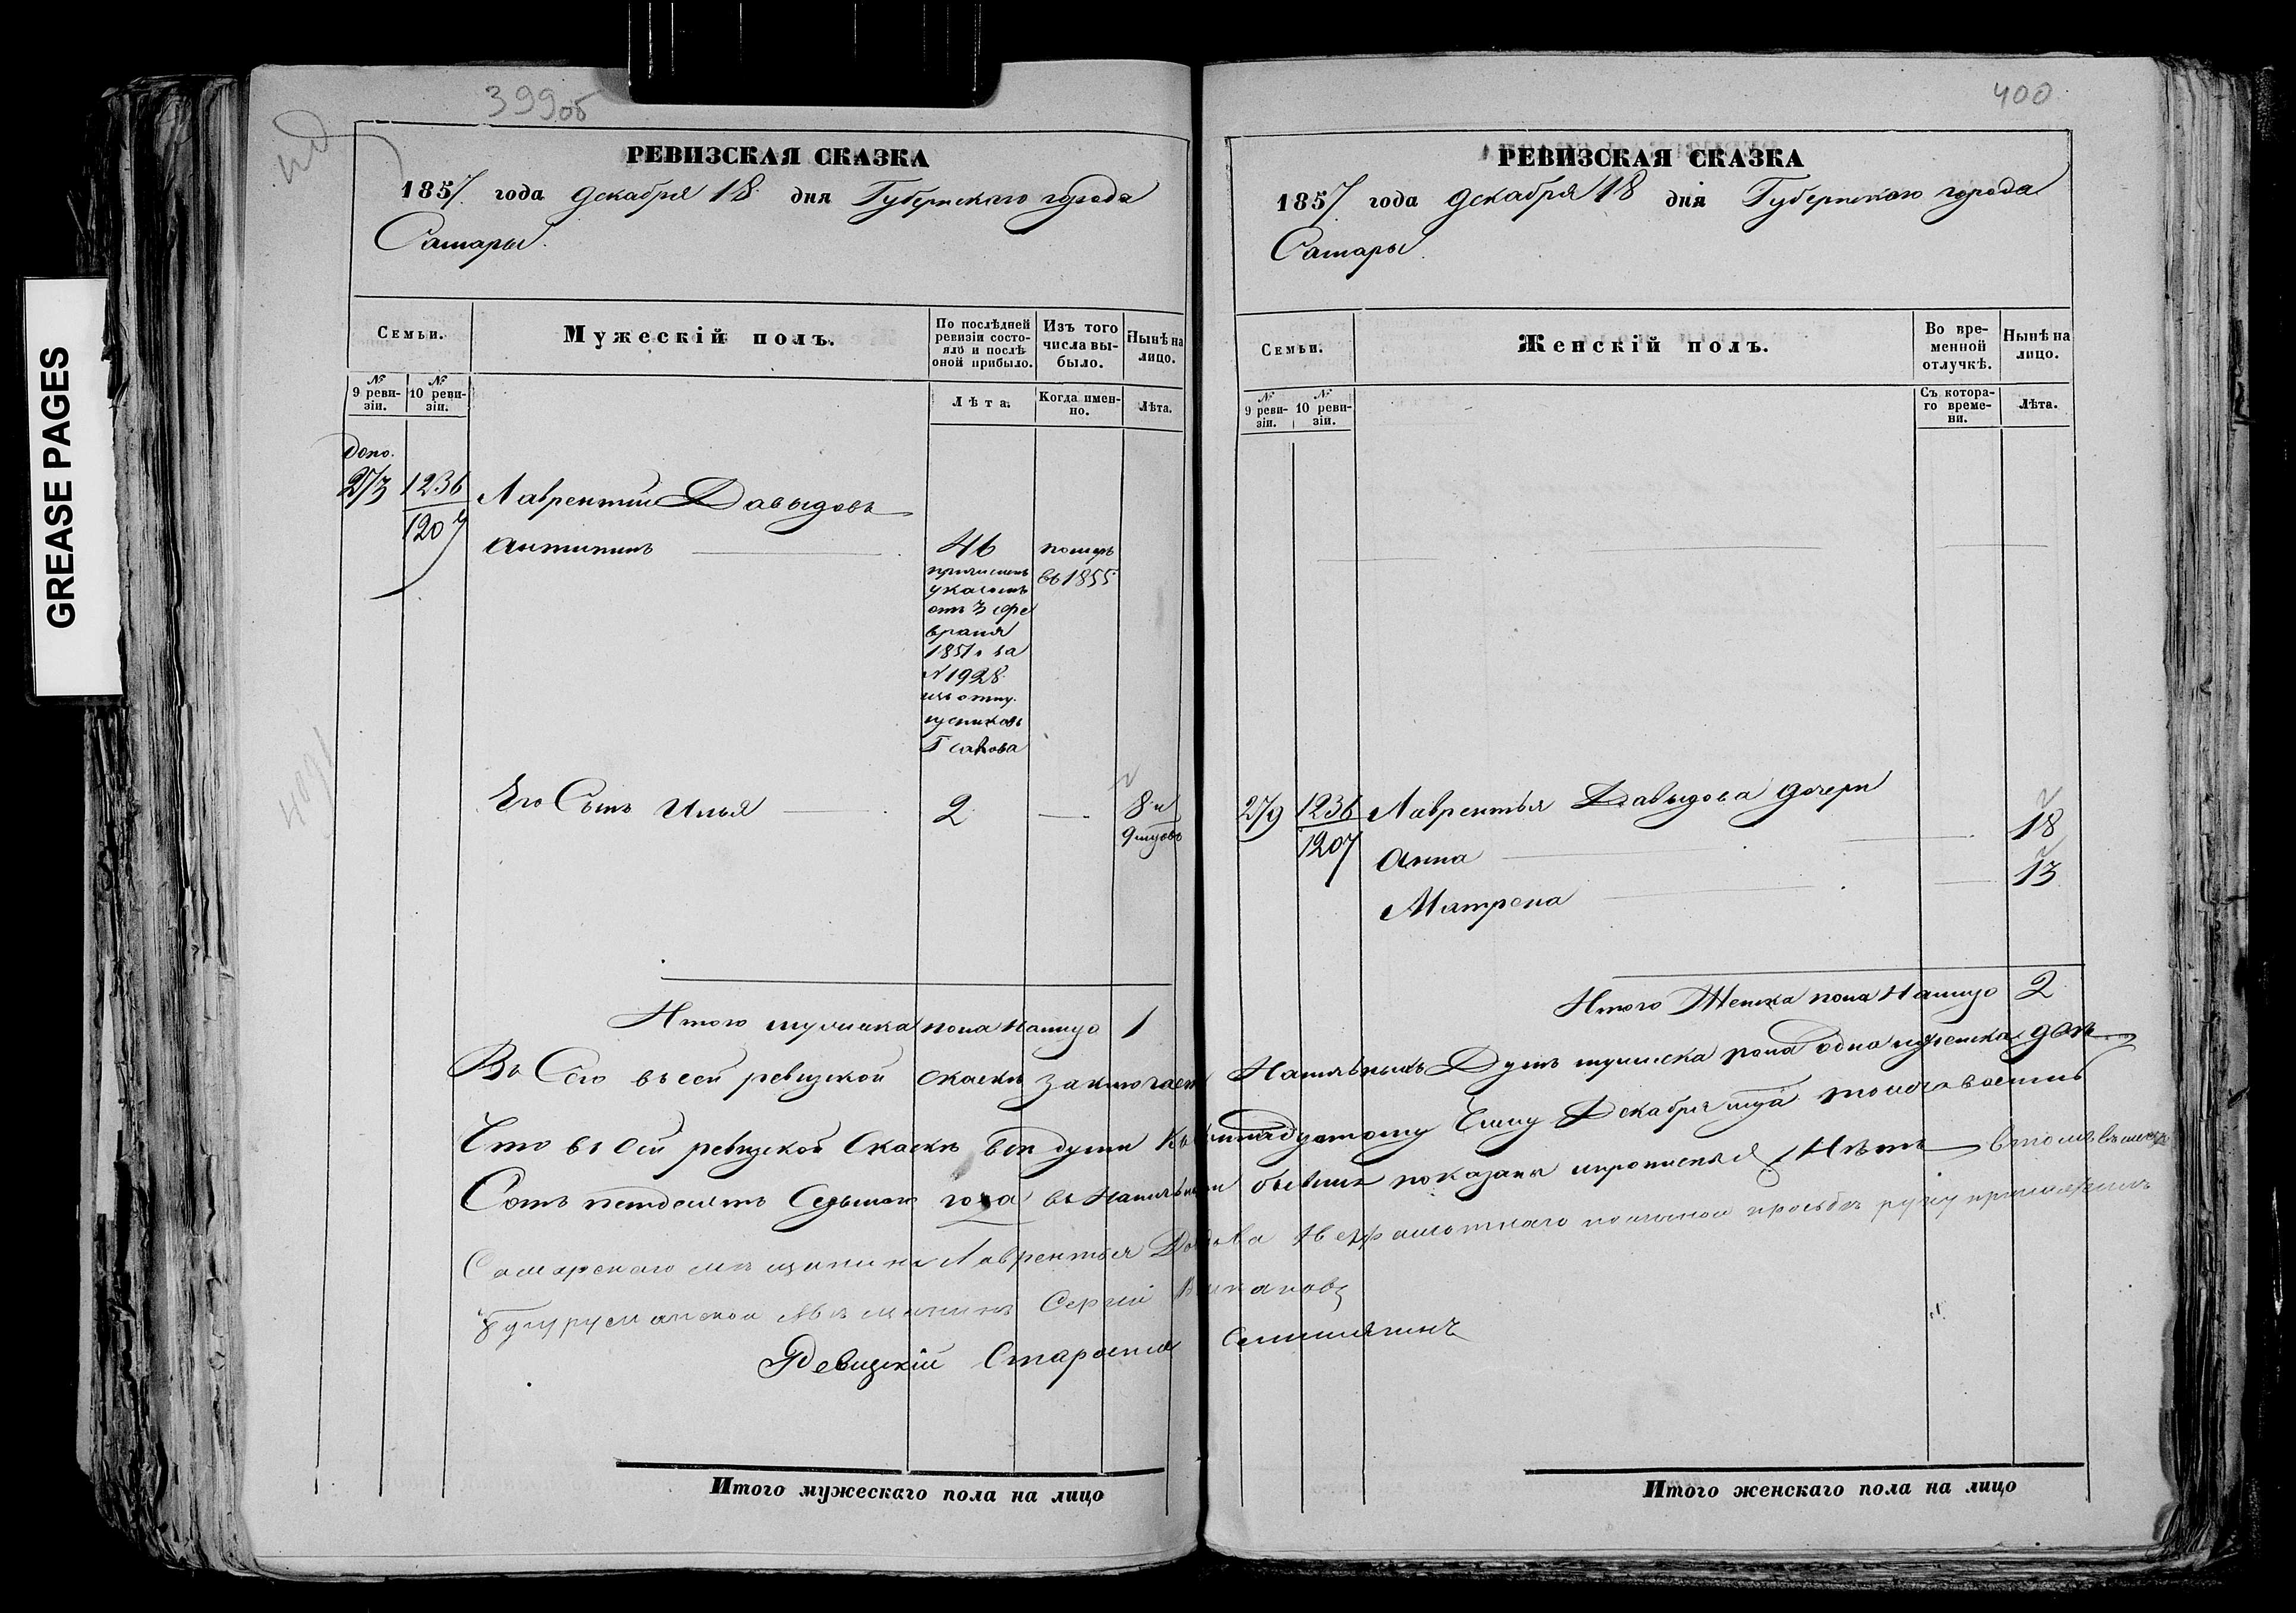 GREASE PAGES
399об
РЕВИЗСКАЯ СКАЗКА
1857 года декабря 18 дня Губернскаго города
Самары.
Семьи.
Мужескій полъ.
По послѣдней ревизіи состояло и послѣ оной прибыло.
Изъ того числа выбыло.
Нынѣ на лицо.
№ 9 ревизіи.
№ 10 ревизіи.
Лѣта.
Когда именно.
Лѣта.
допо.
273 1236 Лаврентий Давыдовъ
1207 Антипинъ 46 померъ
причисленъ въ 1855
указомъ
отъ 3 фе
враля
1851 г за
№ 1928
изъ отпу
щениковъ
Г
Его Сынъ Илья 2 — 8 и
9 мцовъ
Итого мужеска пола налицо 1
400
РЕВИЗСКАЯ СКАЗКА
1857 года декабря 18 дня Губернскаго города
Самары.
Семьи.
Женскій полъ.
Во временной отлучкѣ.
Нынѣ на лицо.
№ 9 ревизіи.
№ 10 ревизіи.
Съ котораго времени.
Лѣта.
279 1236 Лаврентья Давыдова дочери
1207 Анна 18
Матрена 13
Итого Женска пола Налицо 2
Въ Сей ревизской скаскѣ заключает Наличныхъ Душъ мужеска пола одна и женска двѣ
Что въ Сей ревизской Скаскѣ всѣ души Къ Числу Декабря мца тысяча восемь
Сотъ петдесятъ Седьмого года въ Наличности бывшія показаны и прописныхъ Нѣтъ в томъ вместо
Самарскаго мѣщанина Лаврентья неграмотнаго по личной просьбѣ руку приложилъ
Бугурусланской Мѣщанинъ Сергій
Ревизскій Староста
Итого мужескаго пола на лицо
Итого женскаго пола на лицо